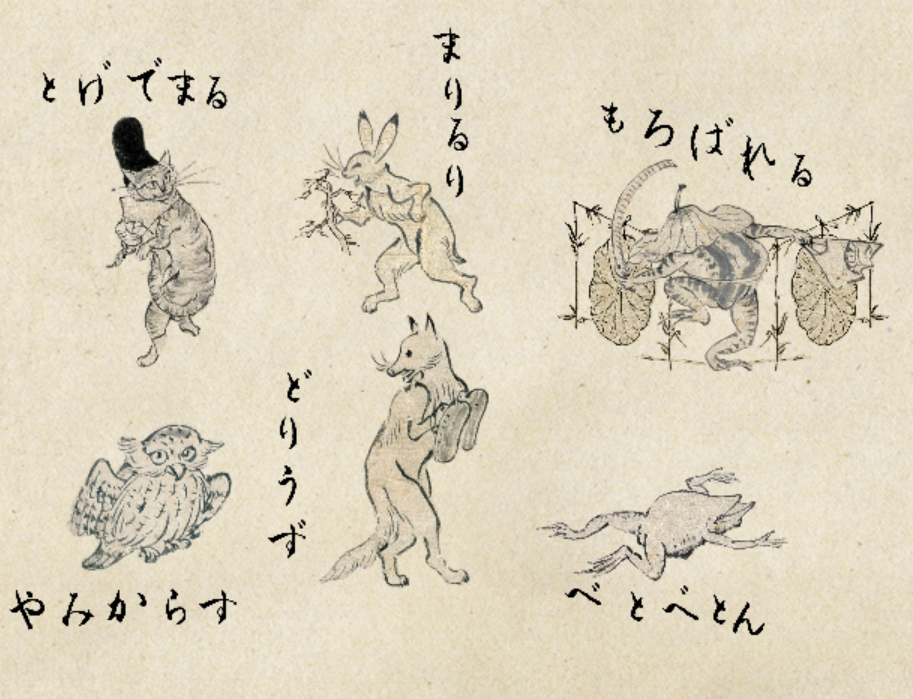 とげでまる
まりるり
もろばれる
どりうず
やみからす
べとべとん